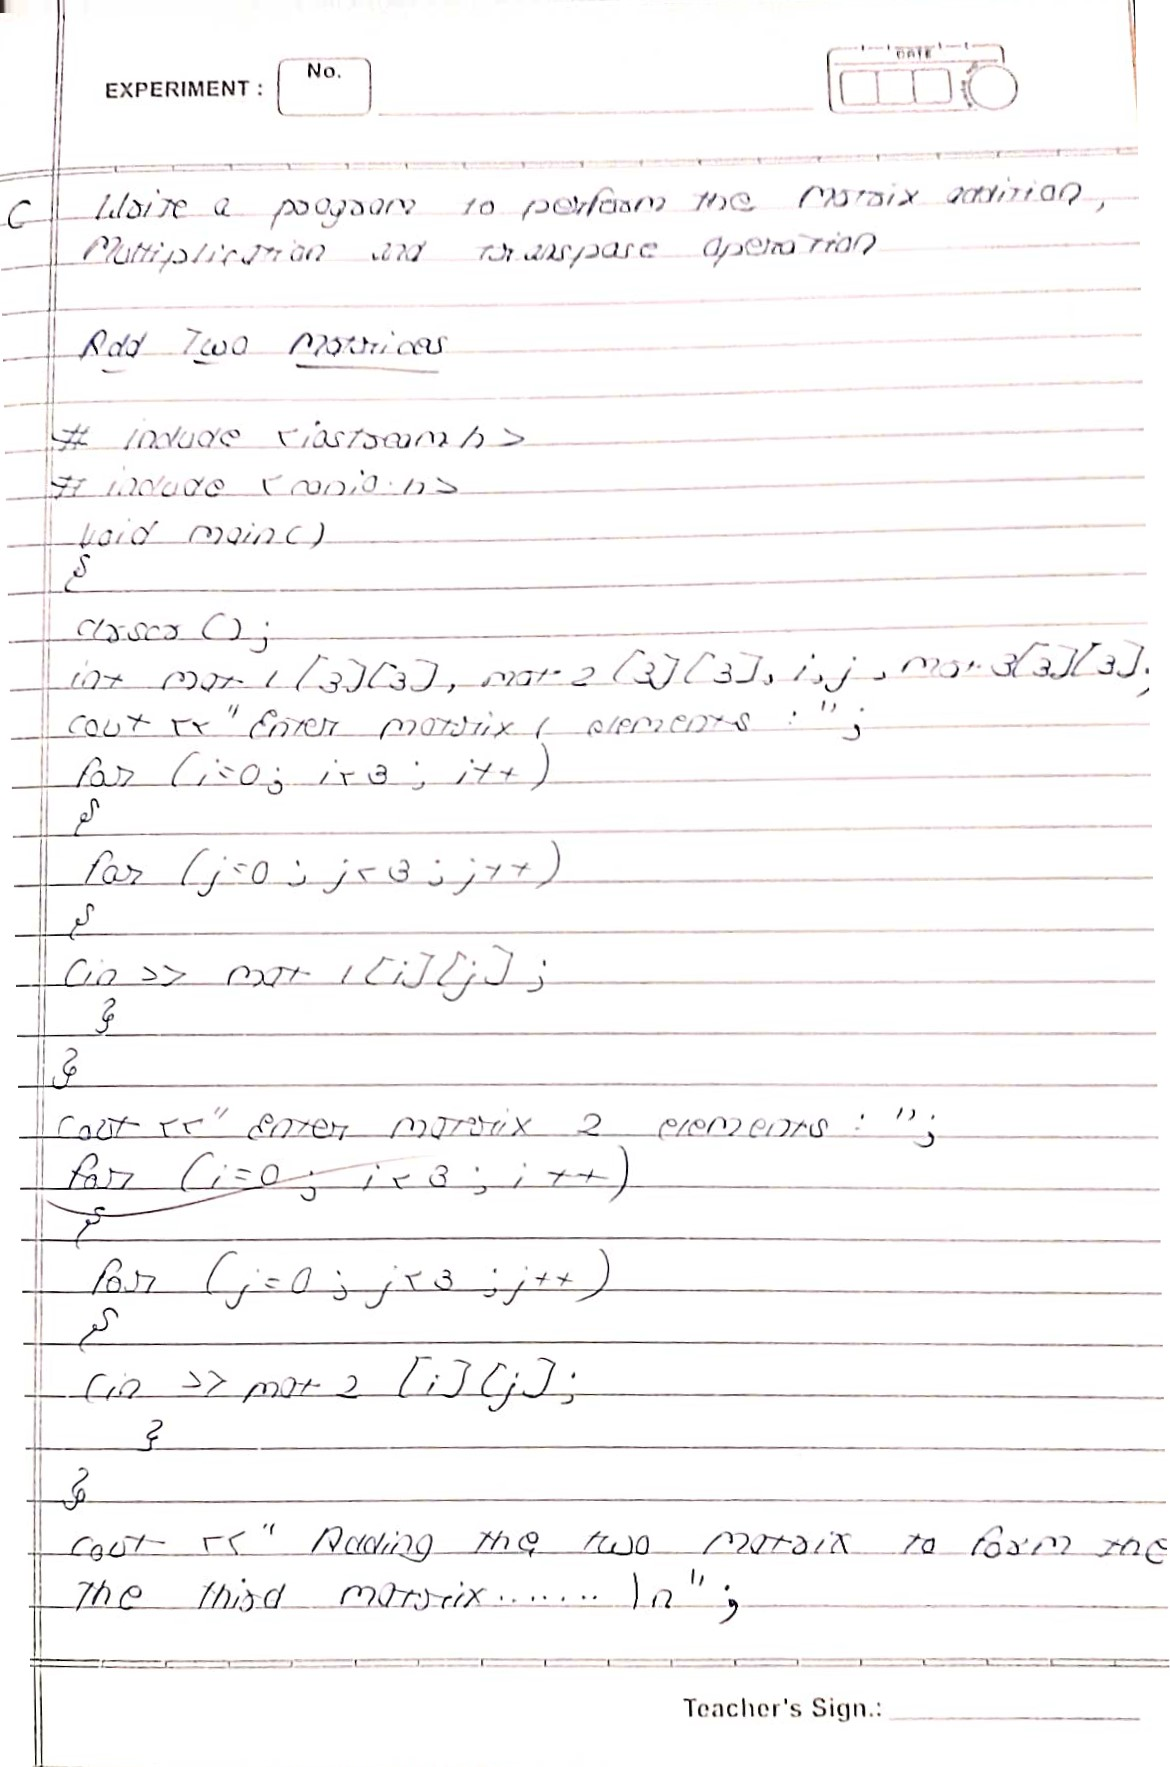 EXPERIMENT :
No.
DATE
C Write a program to perform the Matrix addition,
Multiplication and transpose operation
Add Two Matrices
# include <iostream.h>
# include <conio.h>
void main()
{
clrscr ();
int mat 1 [3][3], mat 2 [3][3], i,j , mat 3[3][3];
cout << "Enter matrix 1 elements : ";
for (i=0; i<3 ; i++)
{
for (j=0 ; j<3 ; j++)
{
Cin >> mat 1[i][j] ;
}
}
cout << " Enter matrix 2 elements : ";
for (i=0; i<3 ; i ++)
{
for (j=0 ; j<3 ; j++)
{
Cin >> mat 2 [i][j];
}
}
cout << " Adding the two matrix to form the
The third matrix....... \n" ;
Teacher's Sign.: